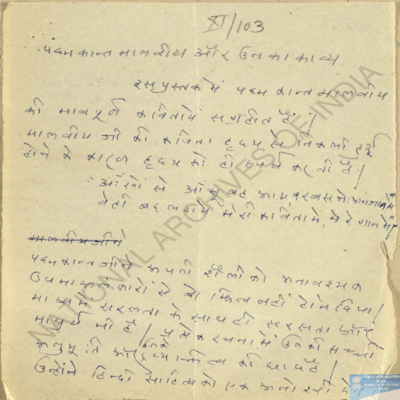 XI/103
पद्मकान्त मालवीय और उनका काव्य
इस पुस्तक में पद्मकान्त मालवीय
की भावपूर्ण कवितायें संग्रहीत हैं।
मालवीय जी की कविता हृदय से निकली हुई
होने के कारण हृदय को ही स्पर्श करती है।
आँखों से आँसू बह आये
वही बदल गये मेरी कविता में, मेरे गान में।
मालवीय जी ने
पद्मकान्त जी ने अपनी शैली को अनावश्यक
उपमा अलंकारों से बोझिल नहीं होने दिया।
भाषा में सरलता के साथ ही सरसता और
माधुर्य भी है। प्रत्येक रचना में उनकी सच्ची
अनुभूति और व्यक्तित्व की छाप है।
उन्होंने हिन्दी साहित्य को एक
NATIONAL ARCHIVES OF INDIA